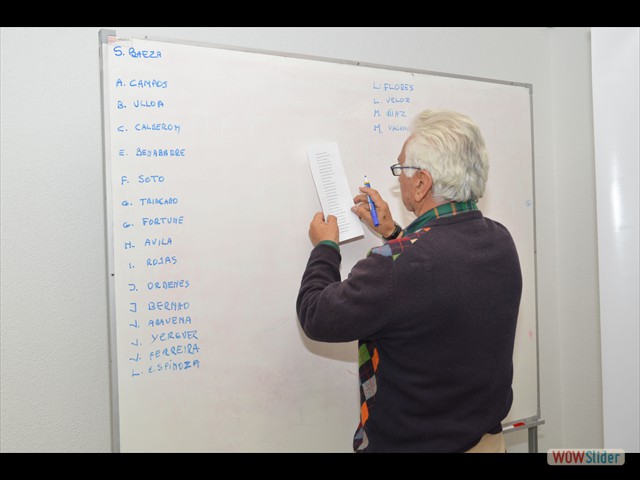 S. BAEZA
A. CAMPOS
B. ULLOA
C. CALDERON
E. BENABADRE
F. SOTO
G. TRINCADO
G. FORTUNE
H. AVILA
I. ROJAS
J. ORDENES
J BERNAD
J. ARAVENA
J. YERGUER
J. FERREIRA
L. ESPINOZA
L. FLORES
L. VELOZ
M. DIAZ
M.
WOWSlider